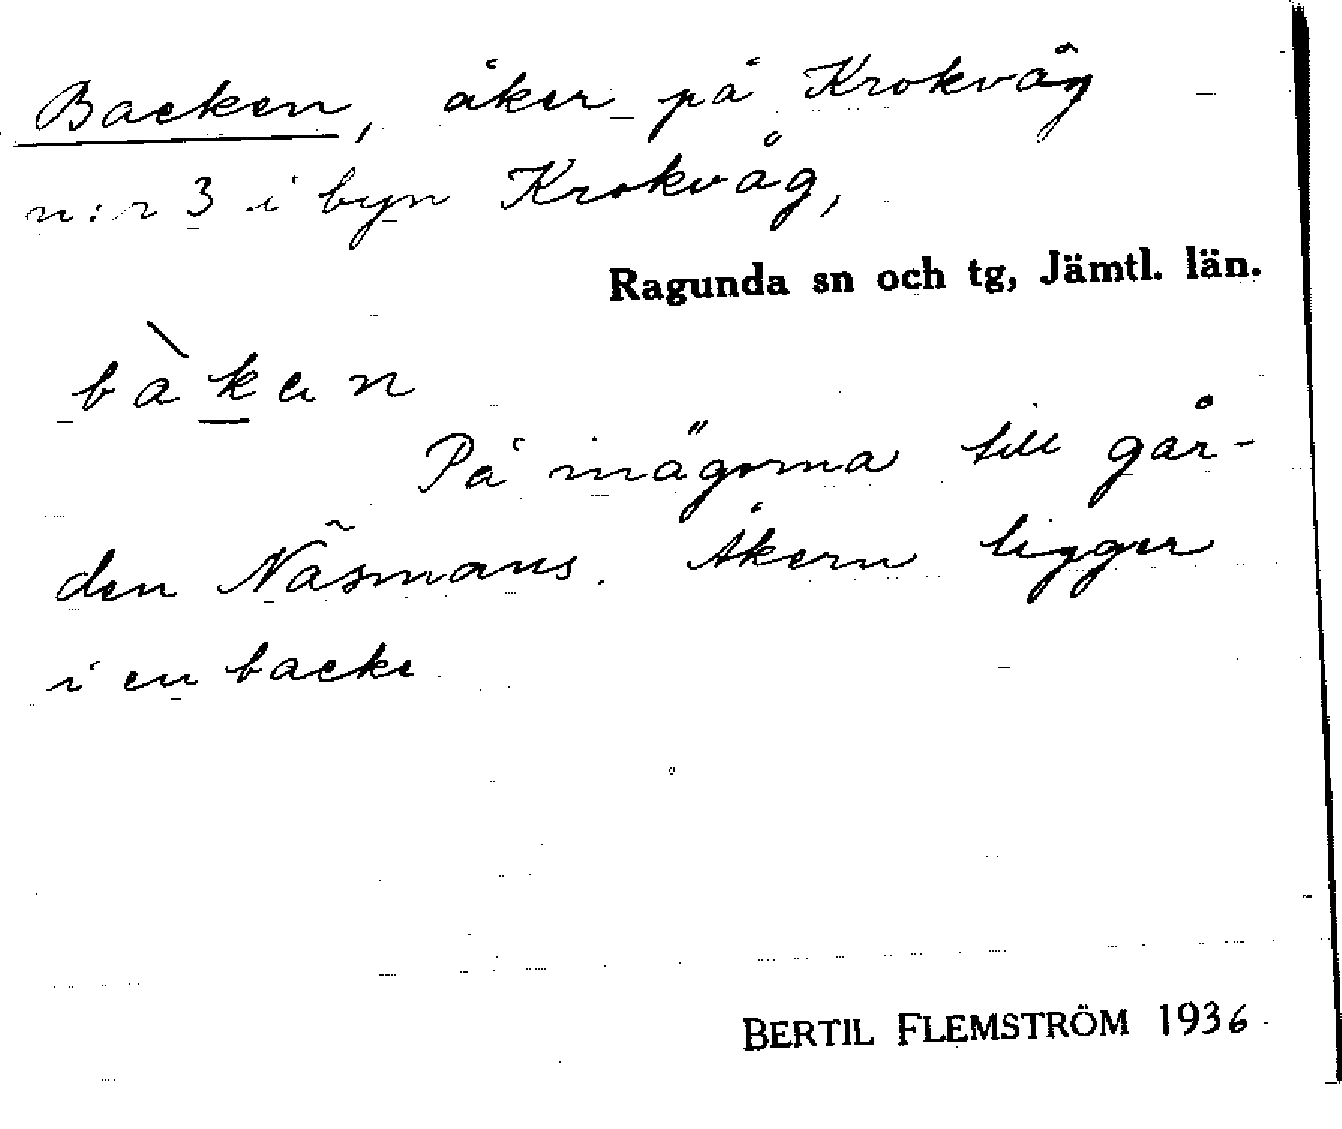 Backen, åker på Krokvåg
n:r 3 i byn Krokvåg,
Ragunda sn och tg, Jämtl. län.
bàkan
På inägorna till går-
den Näsmans. Åkern ligger
i en backe
BERTIL FLEMSTRÖM 1936